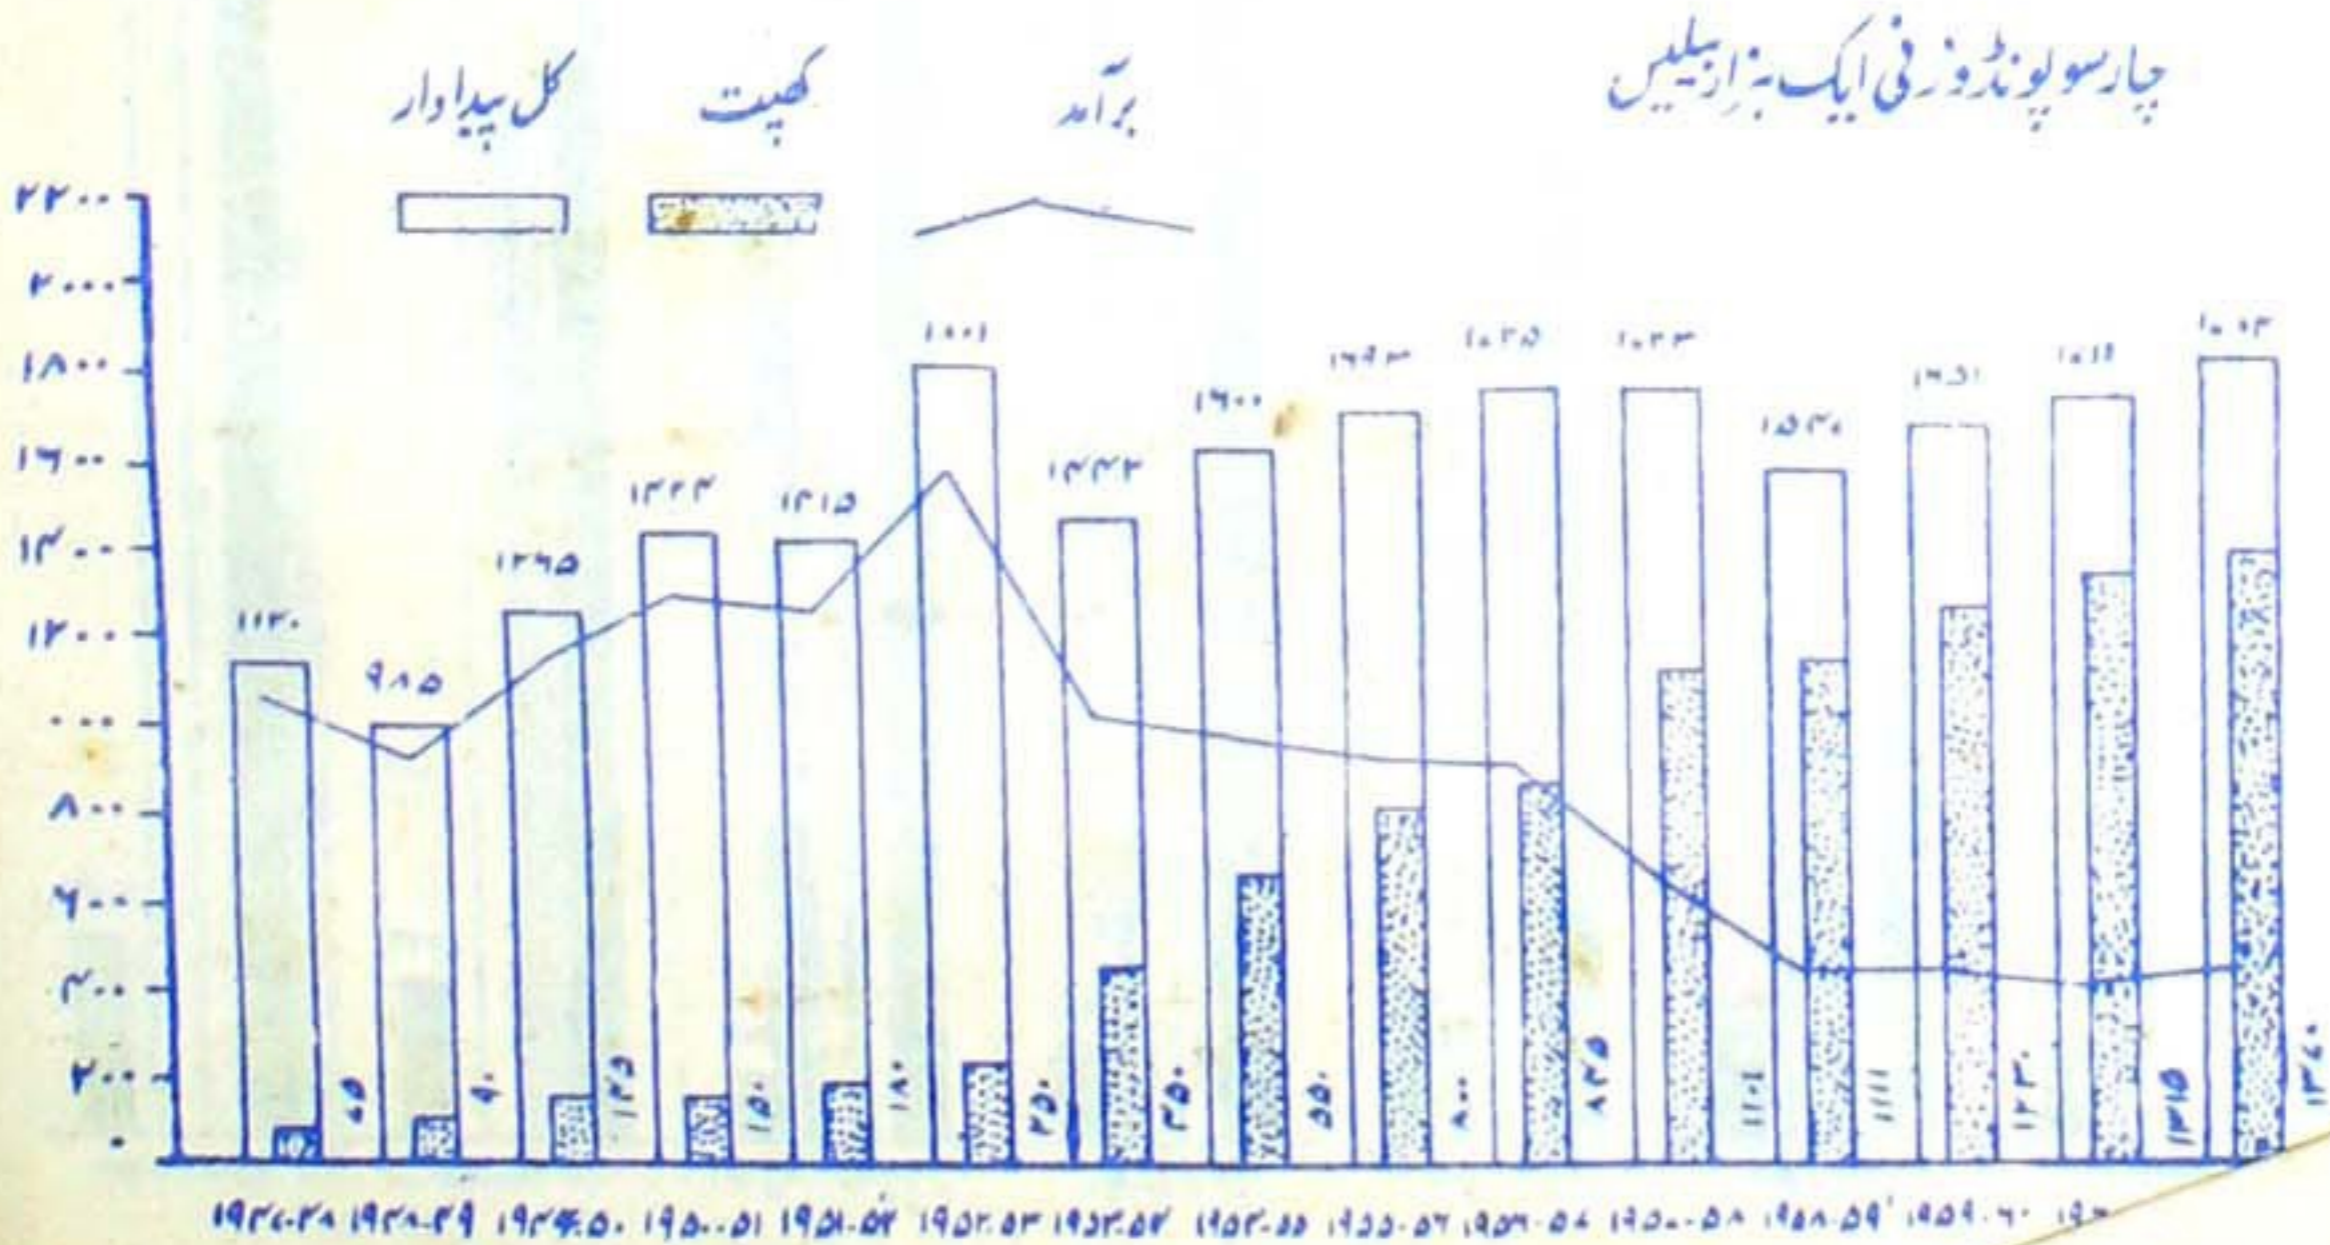 چار سو پونڈ وزنی ایک ہزار بیلیں
برآمد کھپت کل پیداوار
۲۲۰۰
۲۰۰۰
۱۸۰۰
۱۶۰۰
۱۴۰۰
۱۲۰۰
۰۰۰
۸۰۰
۶۰۰
۴۰۰
۲۰۰
۰
۱۱۲۰ ۹۸۵ ۱۲۶۵ ۱۳۱۵ ۱۸۰۱ ۱۴۴۲ ۱۶۰۰ ۱۶۹۳ ۱۶۵۱
۹۰ ۱۲۵ ۱۵۰ ۱۸۰ ۲۵۰ ۴۵۰ ۵۵۰ ۸۰۰ ۸۴۵ ۱۱۰۱ ۱۱۱۱ ۱۲۳۰ ۱۳۱۵ ۱۳۷۰
۱۹۴۷-۴۸ ۱۹۴۸-۴۹ ۱۹۴۹-۵۰ ۱۹۵۰-۵۱ ۱۹۵۱-۵۲ ۱۹۵۲-۵۳ ۱۹۵۳-۵۴ ۱۹۵۴-۵۵ ۱۹۵۵-۵۶ ۱۹۵۶-۵۷ ۱۹۵۷-۵۸ ۱۹۵۸-۵۹ ۱۹۵۹-۶۰